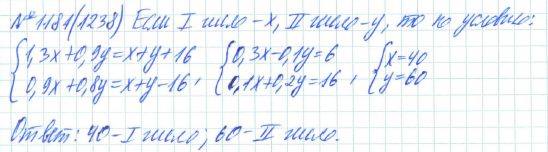 № 1181(1238) Если I число - x, II число - y, то по условию:
{1,3x+0,9y=x+y+16 {0,3x-0,1y=6 {x=40
{0,9x+0,8y=x+y-16, {0,1x+0,2y=16, {y=60
Ответ: 40 - I число; 60 - II число.